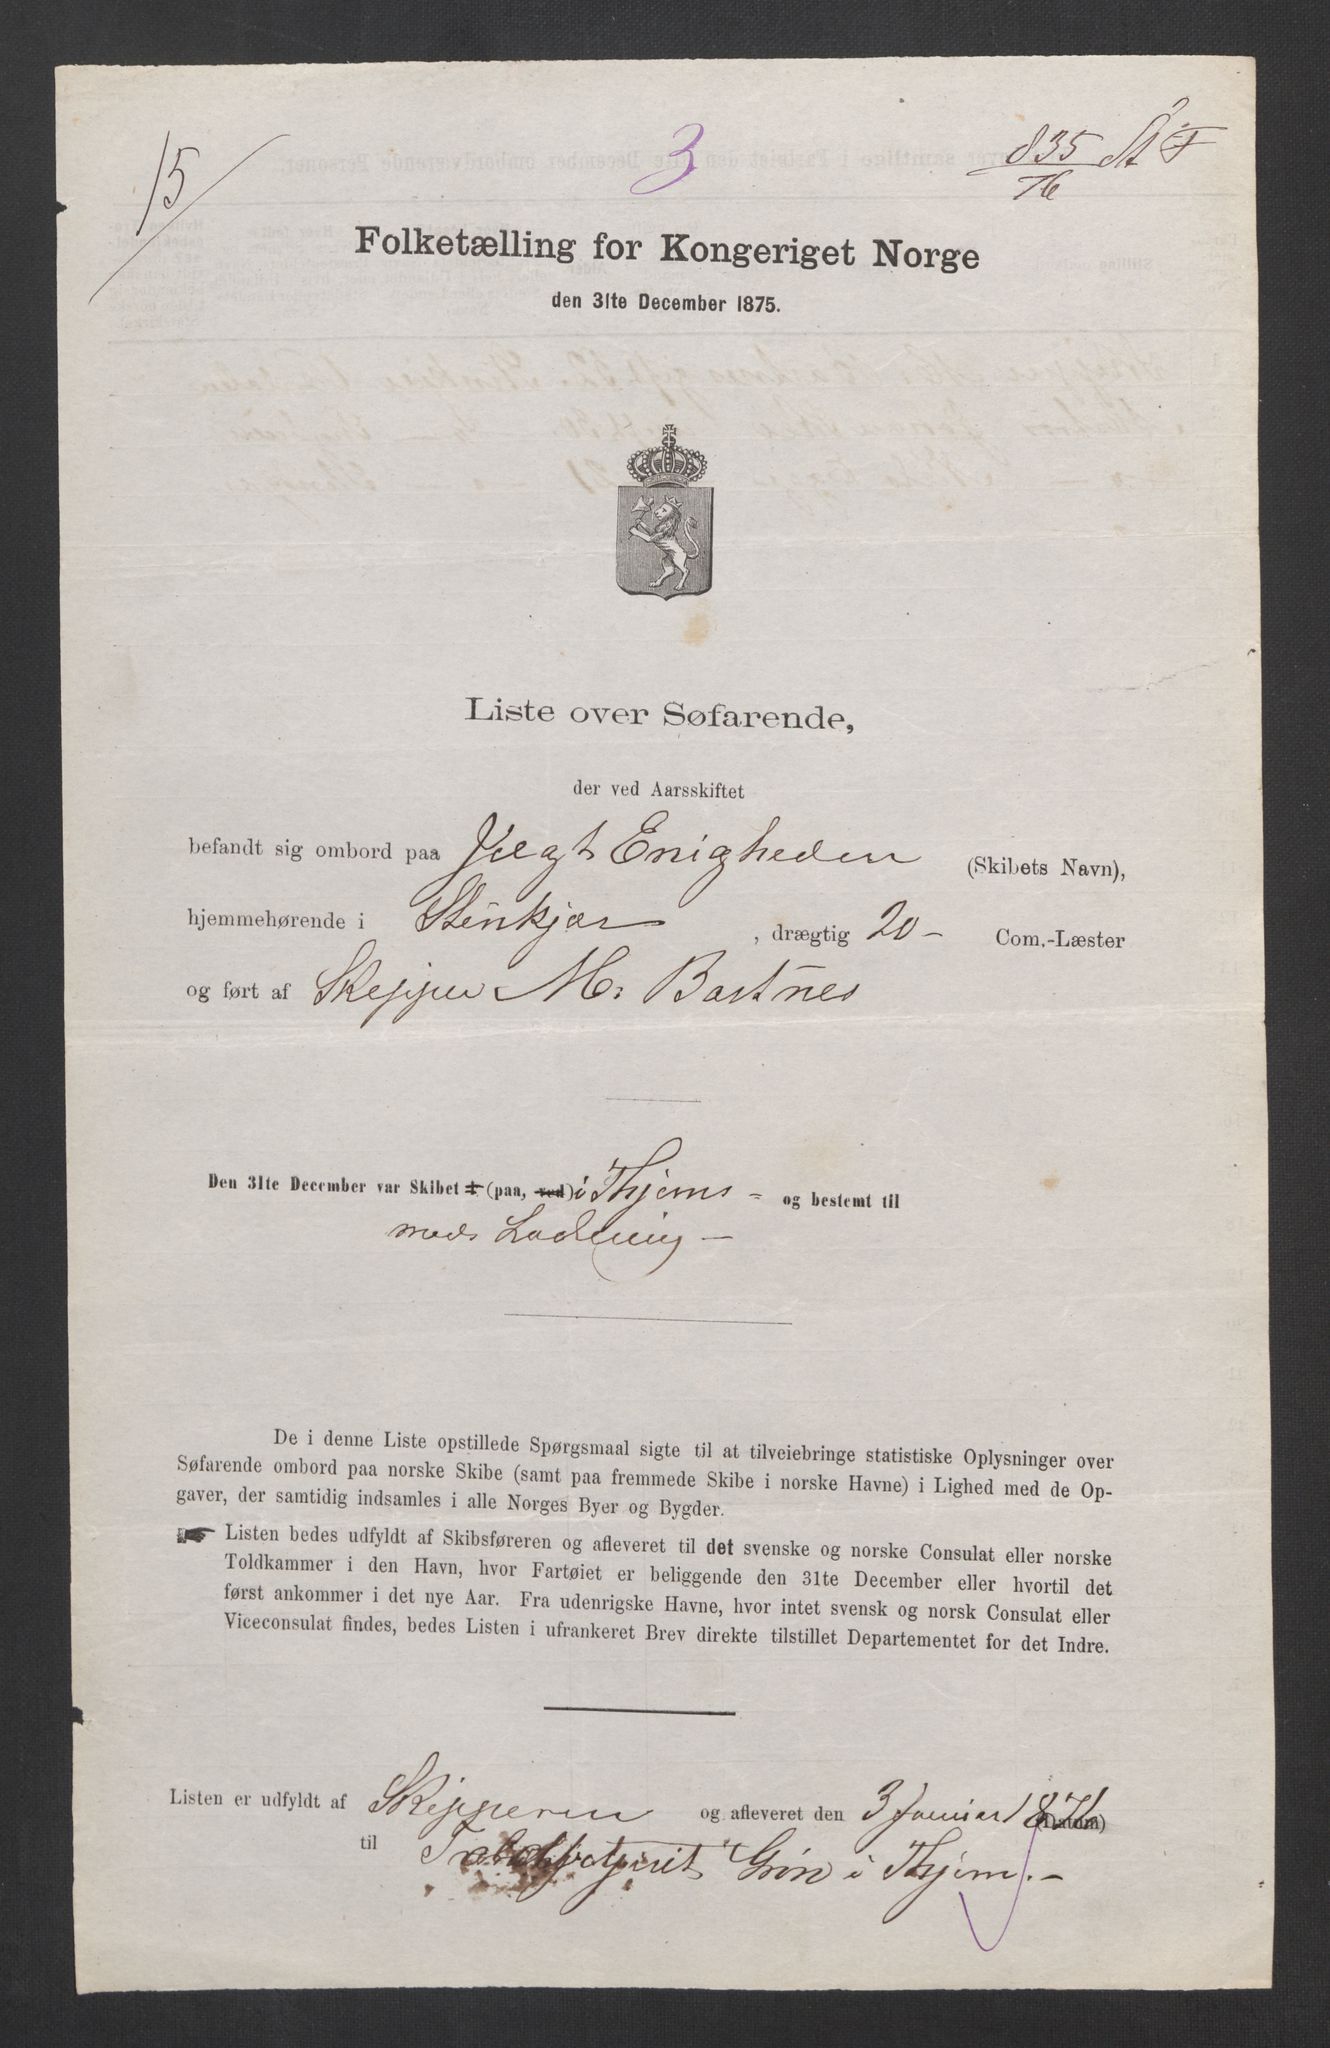 15
3
835 St F
76
Folketælling for Kongeriget Norge
den 31te December 1875.
Liste over Søfarende,
der ved Aarsskiftet
befandt sig ombord paa Jægt Enigheden (Skibets Navn),
hjemmehørende i Stenkjær, drægtig 20 - Com.-Læster
og ført af Skipper M. Bartnes
Den 31te December var Skibet i (paa, ved) i Thjems - og bestemt til
med Ladning -
De i denne Liste opstillede Spørgsmaal sigte til at tilveiebringe statistiske Oplysninger over
Søfarende ombord paa norske Skibe (samt paa fremmede Skibe i norske Havne) i Lighed med de Op-
gaver, der samtidig indsamles i alle Norges Byer og Bygder.
Listen bedes udfyldt af Skibsføreren og afleveret til det svenske og norske Consulat eller norske
Toldkammer i den Havn, hvor Fartøiet er beliggende den 31te December eller hvortil det
først ankommer i det nye Aar. Fra udenrigske Havne, hvor intet svensk og norsk Consulat eller
Viceconsulat findes, bedes Listen i ufrankeret Brev direkte tilstillet Departementet for det Indre.
Listen er udfyldt af Skipperen og afleveret den 3 Januar 1876 (Datum)
til Grøn i Thjem. -